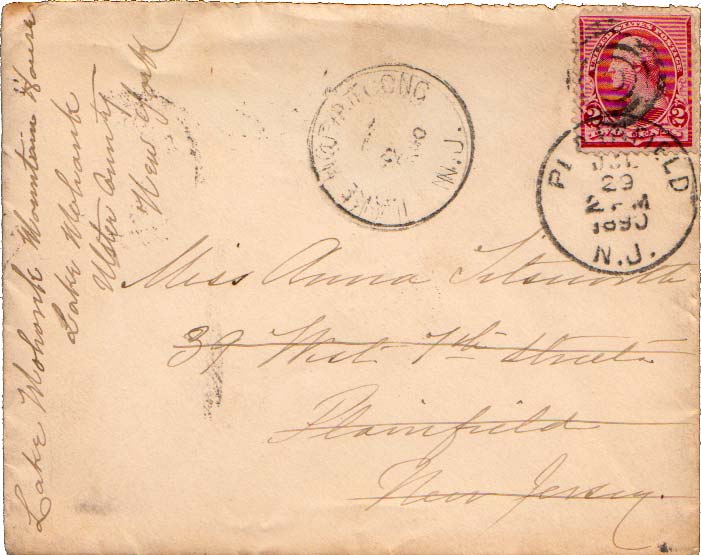 Lake Mohonk Mountain House
Lake Mohonk
Ulster County
New York
LAKE HOPATCONG
N.J.
UNITED STATES POSTAGE
2 2
PLAINFIELD
JUL
29
2 PM
1890
N.J.
Miss Anna Titsworth
39 West 7th Street
Plainfield
New Jersey.